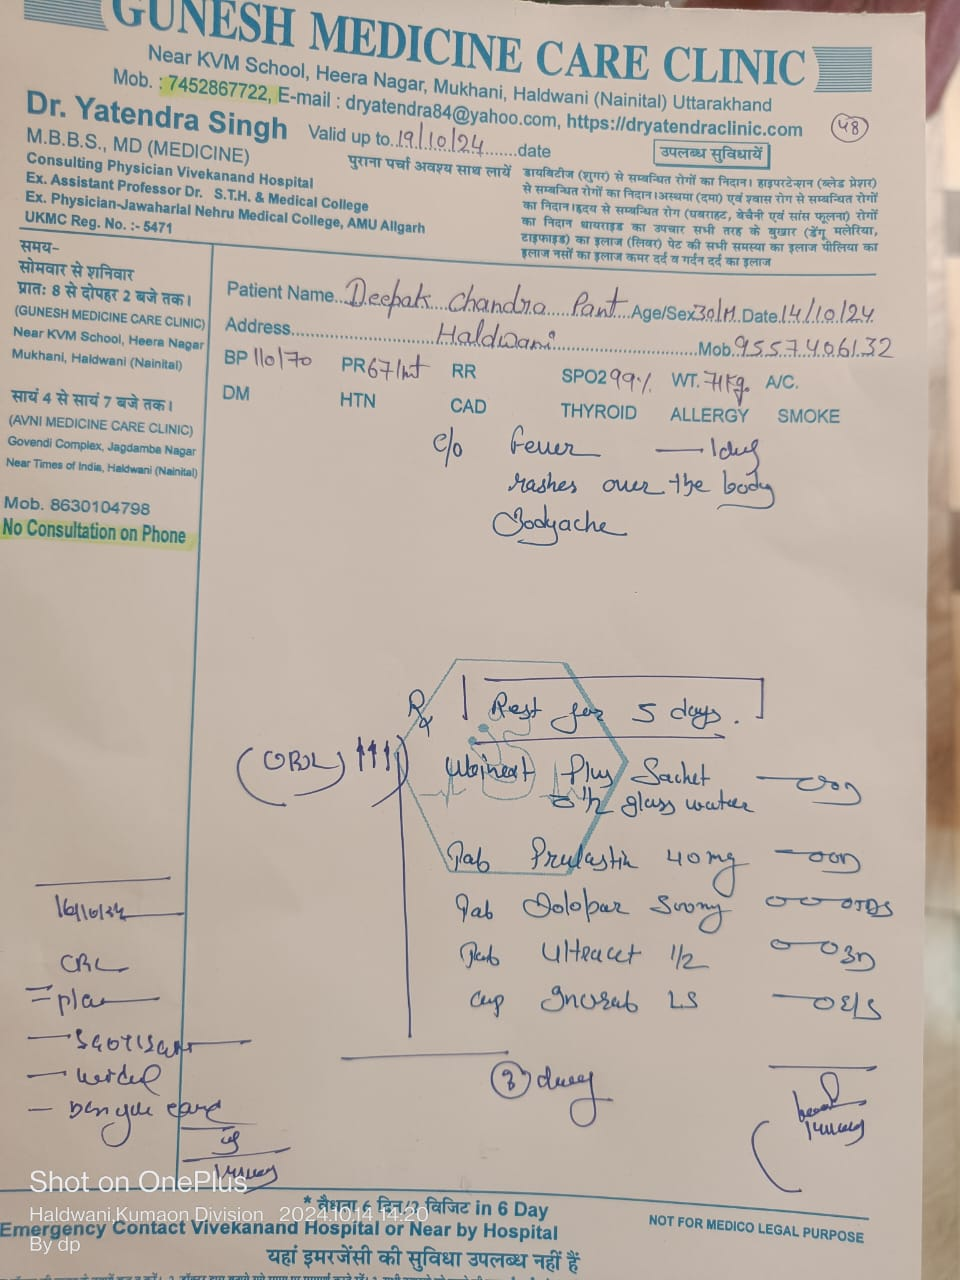 GUNESH MEDICINE CARE CLINIC
Near KVM School, Heera Nagar, Mukhani, Haldwani (Nainital) Uttarakhand
Mob. : 7452867722, E-mail : dryatendra84@yahoo.com, https://dryatendraclinic.com
48
Dr. Yatendra Singh
M.B.B.S., MD (MEDICINE)
Consulting Physician Vivekanand Hospital
Ex. Assistant Professor Dr. S.T.H. & Medical College
Ex. Physician-Jawaharlal Nehru Medical College, AMU Aligarh
UKMC Reg. No. :- 5471
Valid up to 19/10/24 date
पुराना पर्चा अवश्य साथ लायें
उपलब्ध सुविधायें
डायबिटीज (शुगर) से सम्बन्धित रोगों का निदान। हाइपरटेन्शन (ब्लेड प्रेशर)
से सम्बन्धित रोगों का निदान।अस्थमा (दमा) एवं श्वास रोग से सम्बन्धित रोगों
का निदान।हृदय से सम्बन्धित रोग (घबराहट, बेचैनी एवं सांस फूलना) रोगों
का निदान थायराइड का उपचार सभी तरह के बुखार (डेंगू मलेरिया,
टाइफाइड) का इलाज (लिवर) पेट की सभी समस्या का इलाज पीलिया का
इलाज नसों का इलाज कमर दर्द व गर्दन दर्द का इलाज
समय–
सोमवार से शनिवार
प्रातः 8 से दोपहर 2 बजे तक।
(GUNESH MEDICINE CARE CLINIC)
Near KVM School, Heera Nagar
Mukhani, Haldwani (Nainital)
सायं 4 से सायं 7 बजे तक।
(AVNI MEDICINE CARE CLINIC)
Govendi Complex, Jagdamba Nagar
Near Times of India, Haldwani (Nainital)
Mob. 8630104798
No Consultation on Phone
Patient Name Deepak Chandra Pant Age/Sex 30/M Date 14/10/24
Address Haldwani Mob. 9557406132
BP 110/70 PR 67/mt RR SPO2 99% WT. 71Kg. A/C.
DM HTN CAD THYROID ALLERGY SMOKE
c/o Fever — 1 day
rashes over the body
Bodyache
Rx Rest for 5 days.
Plus Sachet
1/2 glass water
Tab 40 mg
Tab Dolopar 500mg
Tab Ultracet 1/2
Cap LS
3 days
16/10/24
Dengue card
Shot on OnePlus
Haldwani,Kumaon Division 2024.10.14 14:20
By dp
* वैधता 6 दिन/2 विजिट in 6 Day
Emergency Contact Vivekanand Hospital or Near by Hospital
NOT FOR MEDICO LEGAL PURPOSE
यहां इमरजेंसी की सुविधा उपलब्ध नहीं हैं